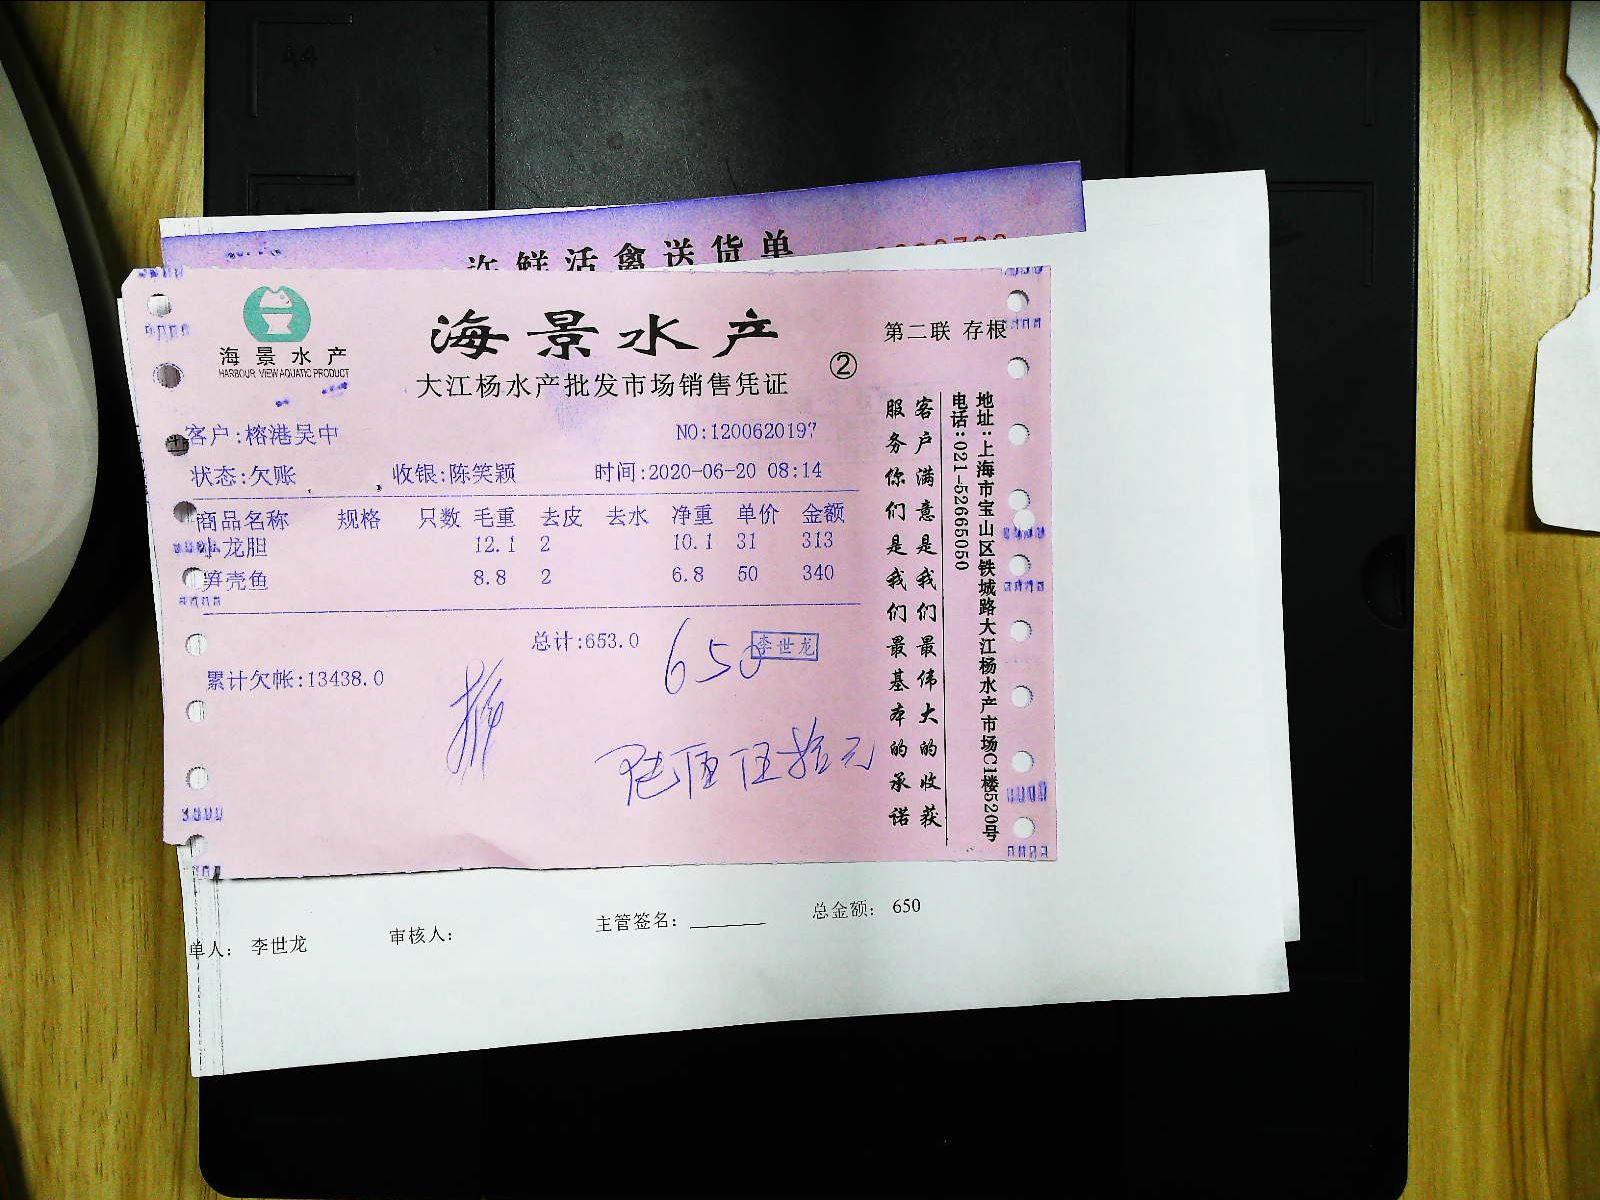 A4
鲜活禽送货单
海景水产
HARBOUR VIEW AQUATIC PRODUCT
海景水产
大江杨水产批发市场销售凭证
②
第二联 存根
客户:榕港吴中
NO:1200620197
状态:欠账 收银:陈笑颖 时间:2020-06-20 08:14
商品名称 规格 只数 毛重 去皮 去水 净重 单价 金额
小龙胆 12.1 2 10.1 31 313
笋壳鱼 8.8 2 6.8 50 340
总计:653.0
650
李世龙
累计欠帐:13438.0
陆佰伍拾元
客户满意是我们最伟大的收获
服务你们是我们最基本的承诺
地址:上海市宝山区铁城路大江杨水产市场C1楼520号
电话:021-52665050
单人: 李世龙 审核人: 主管签名: 总金额: 650